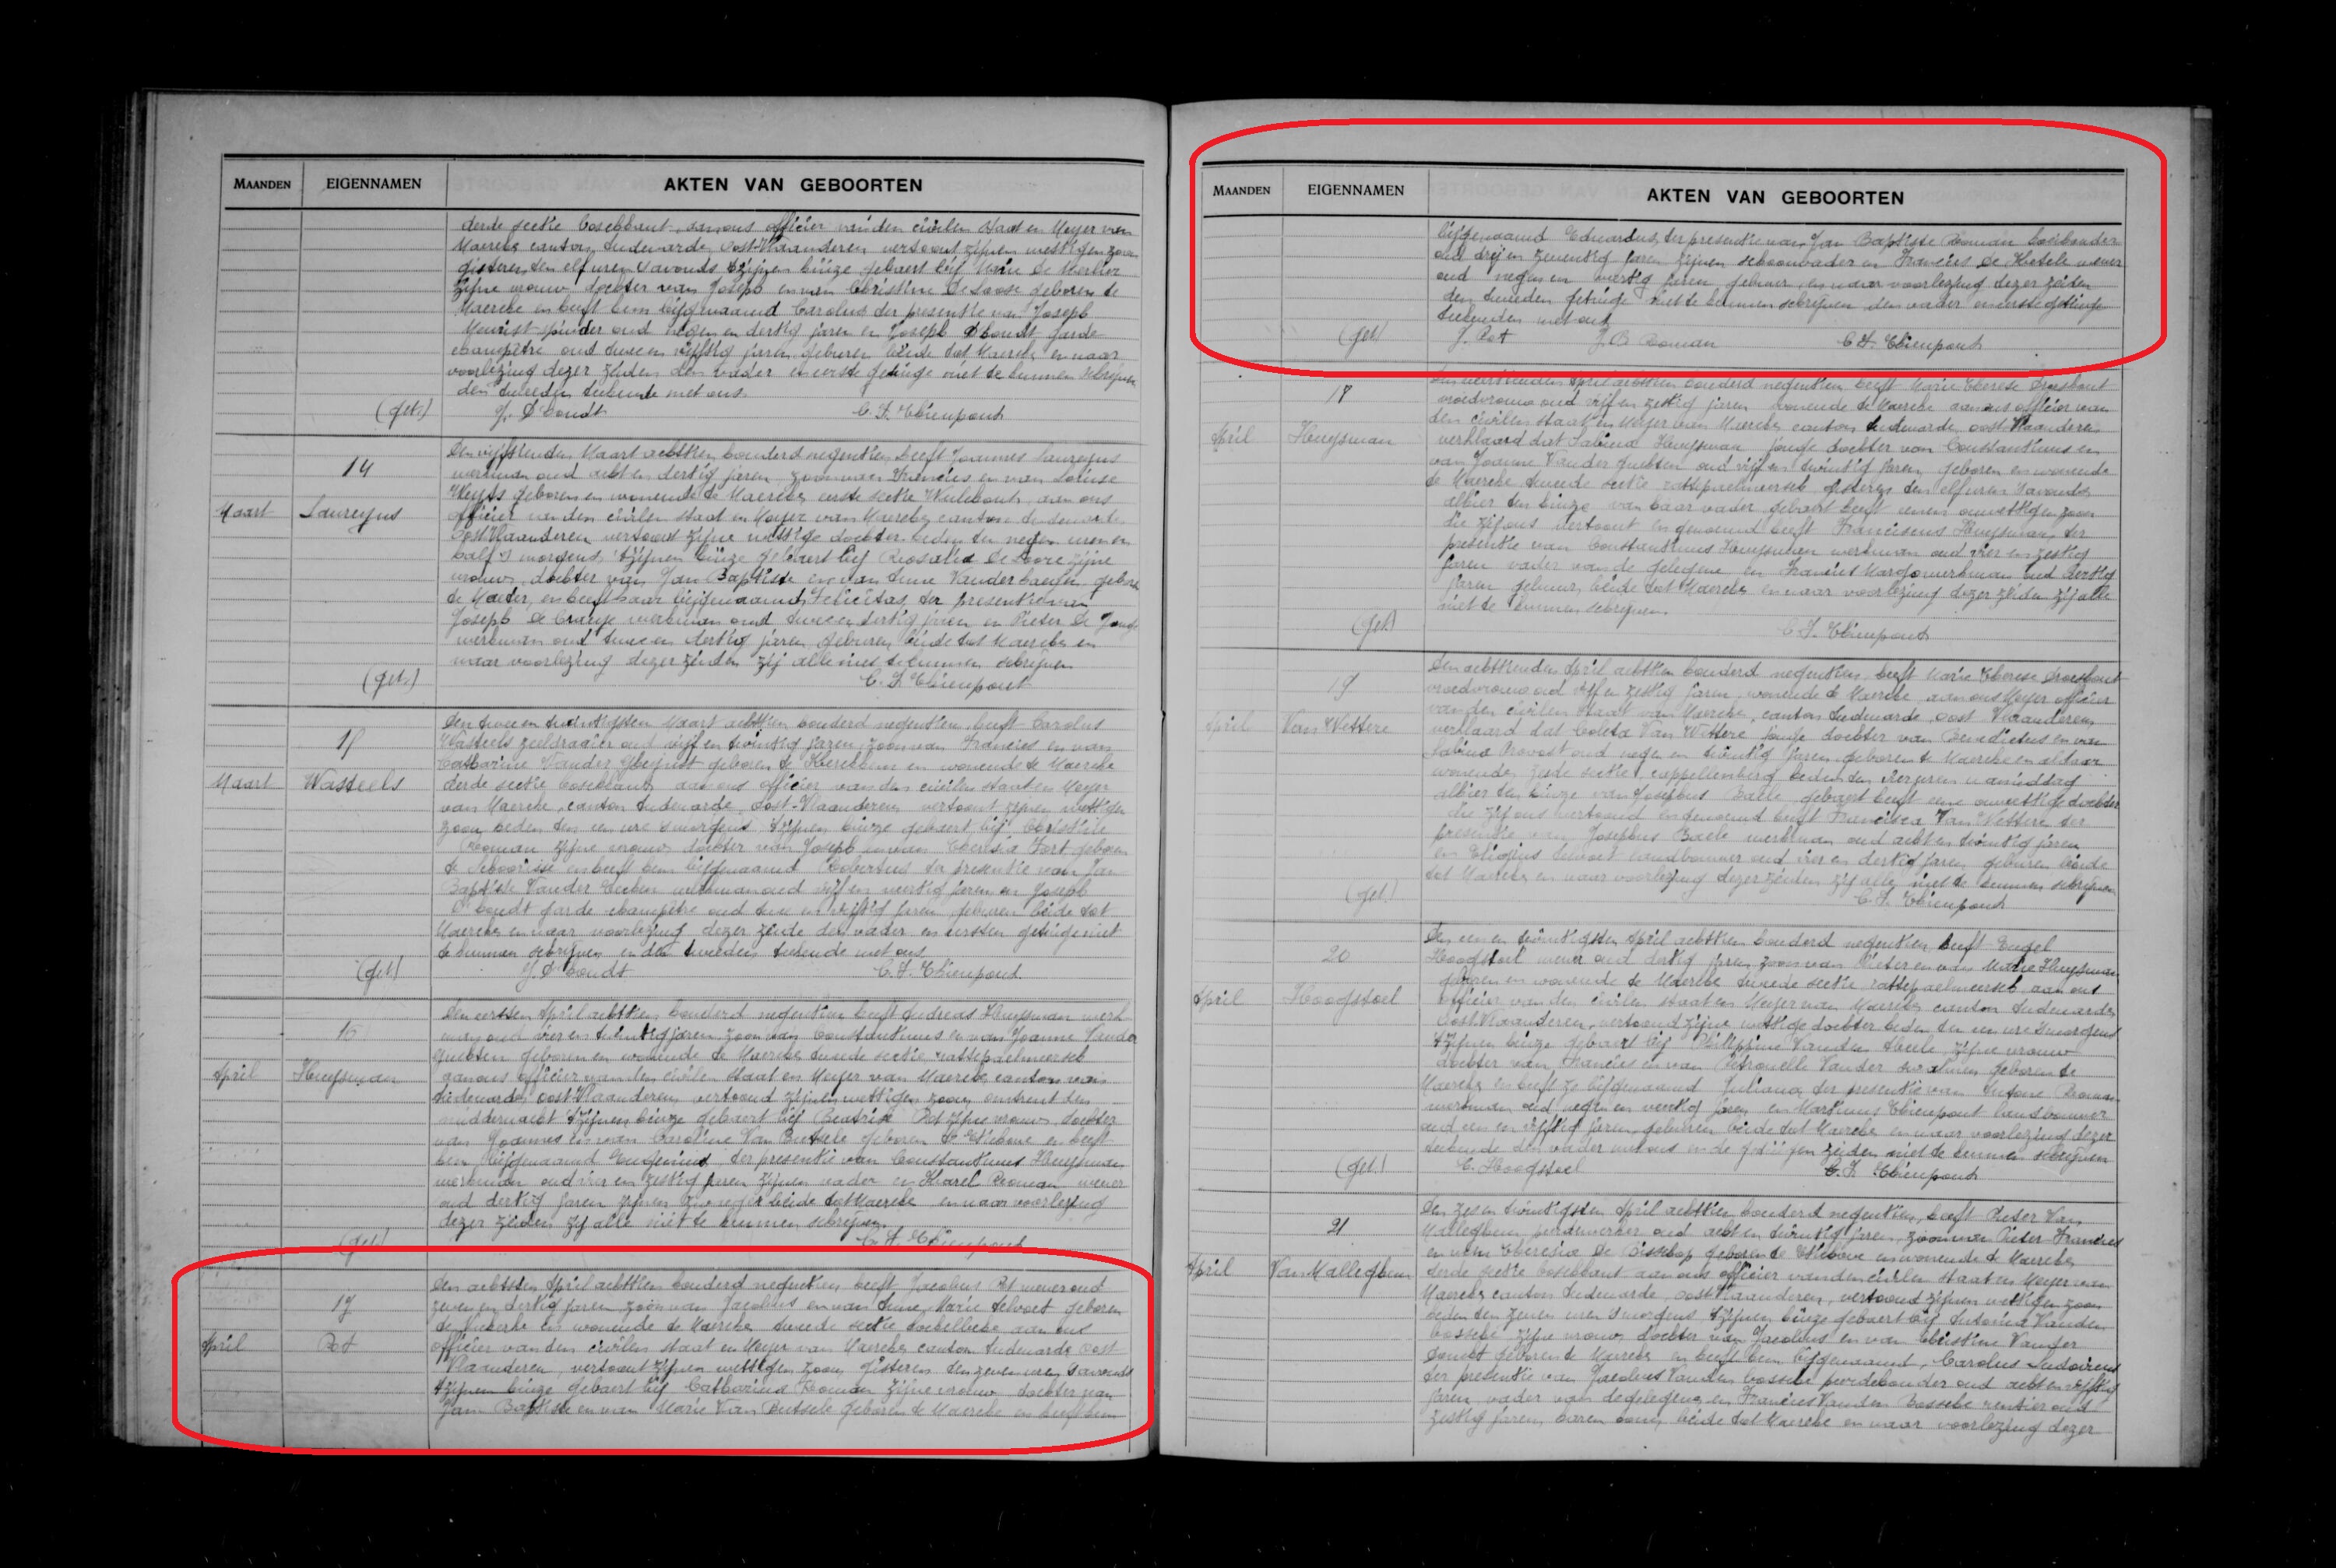 MAANDEN EIGENNAMEN AKTEN VAN GEBOORTEN
derde sectie Bosschkant, aan ons officier van den civilen Staat en Meyer van
Maercke canton Audenarde Oost-Vlaanderen vertoont zijnen wettigen zoon
gisteren ten elf uren s'avonds t'zijnen huize gebaert bij Marie De
zijne vrouw, dochter van Joseph en van Christine De Loose geboren te
Maercke en heeft hem bijgenaamd Carolus ter presentie van Joseph
spinder oud negen en dertig jaren en Joseph D'hondt garde
champètre oud twee en vijftig jaren geburen beide tot Maercke en naar
voorlezing dezer zeiden den vader en eerste getuige niet te kunnen schrijven
den tweeden teekende met ons.
(get.) J. D'hondt C. F. Thienpont
Den vijftienden Maart achttien honderd negentien heeft Joannes Laureyns
14
werkman oud acht en dertig jaren, zoon van Francies en van Louise
geboren en wonende te Maercke eerste sectie aan ons
Maart Laureyns
officier van den civilen staat en Meyer van Maercke canton Audenarde
Oost Vlaanderen vertoont zijne wettige dochter heden ten negen uren en
half s'morgens, t'zijnen huize gebaert bij Rosalia De zijne
vrouw, dochter van Jan Baptiste en van Anne Vanderhaegen, geboren
te Maeter, en heeft haar bijgenaamd Felicitas, ter presentie van
Joseph De werkman oud twee en dertig jaren en Pieter De
werkman oud twee en dertig jaren, geburen beide tot Maercke en
naar voorlezing dezer zeiden zij alle niet te kunnen schrijven
(get.) C. F. Thienpont
Den twee en twintigsten Maart achttien honderd negentien heeft Carolus
15
Wasteels zeeldraaier oud vijf en twintig jaren, zoon van Francies en van
Catharine Vander geboren te Kerckhem en wonende te Maercke
Maart Wasteels
derde sectie Bosschkant, aan ons officier van den civilen staat en Meyer
van Maercke, canton Audenarde, Oost-Vlaanderen, vertoont zijnen wettigen
zoon, heden ten een ure s'morgens, t'zijnen huize gebaert bij Christine
Roman zijne vrouw dochter van Joseph en van Theresia Fort geboren
te Schoorisse en heeft hem bijgenaamd Robertus ter presentie van Jan
Baptiste Vander werkman oud vijf en veertig jaren en Joseph
D'hondt garde champètre oud twee en vijftig jaren, geburen beide tot
Maercke en naar voorlezing dezer zeide den vader en eersten getuige niet
te kunnen schrijven en den tweeden teekende met ons
(get.) J. D'hondt C. F. Thienpont
Den eersten April achttien honderd negentien heeft Andreas Huysman werk
16
man oud vier en twintig jaren zoon van Constantinus en van Joanne Vander
Guchten geboren en wonende te Maercke tweede sectie rattepoelmeersch
April Huysman
aan ons officier van den civilen staat en Meyer van Maercke, canton van
Audenarde, Oost Vlaanderen, vertoond zijnen wettigen zoon, omtrent den
middernacht t'zijnen huize gebaert bij Beatrise Pot zijne vrouw, dochter
van Joannes en van Caroline Van Butsele geboren te Etichove en heeft
hem bijgenaamd Eugenius ter presentie van Constantinus Huysman
werkman oud vier en zestig jaren zijnen vader en Karel Roman wever
oud dertig jaren zijnen zwager beide tot Maercke en naar voorlezing
dezer zeiden zij alle niet te kunnen schrijven.
(get.) C. F. Thienpont
Den achtsten April achttien honderd negentien heeft Jacobus Pot wever oud
17
zeven en dertig jaren zoon van Jacobus en van Anne Marie Schoet geboren
te en wonende te Maercke tweede sectie aan ons
April Pot
officier van den civilen staat en Meyer van Maercke canton Audenarde Oost
Vlaanderen, vertoont zijnen wettigen zoon, gisteren ten zeven uren s'avonds
t'zijnen huize gebaert bij Catharina Roman zijne vrouw, dochter van
Jan Baptiste en van Marie Van Butsele geboren te Maercke en heeft hem
MAANDEN EIGENNAMEN AKTEN VAN GEBOORTEN
bijgenaamd Eduardus, ter presentie van Jan Baptiste Roman
oud drij en zeventig jaren zijnen schoonvader en Francies De wever
oud negen en veertig jaren gebuer, en naar voorlezing dezer zeiden
den tweeden getuige niet te kunnen schrijven den vader en eerste getuige
teekenden met ons
(get) J. Pot J. B. Roman C. F. Thienpont
Den April achttien honderd negentien, heeft Marie Therese Droeshout
18
vroedvrouw oud vijf en zestig jaren wonende te Maercke aan ons officier van
den civilen staat en Meyer van Maercke canton Audenarde, Oost-Vlaanderen
April Huysman
verklaard dat Sabina Huysman jonge dochter van Constantinus en
van Joanne Vander Guchten oud vijf en twintig jaren, geboren en wonende
te Maercke tweede sectie rattepoelmeersch gisteren ten elf uren s'avonds
alhier ten huize van haar vader, gebaert heeft eenen onwettigen zoon
die zij ons vertoont en genoemd heeft Franciscus Huysman, ter
presentie van Constantinus Huysman werkman oud vier en zestig
jaren vader van de gelegene en Francies werkman oud dertig
jaren, gebuer, beide tot Maercke en naar voorlezing dezer zeiden zij alle
niet te kunnen schrijven.
(get.) C. F. Thienpont
Den achttienden April achttien honderd negentien, heeft Marie Therese Droeshout
19
vroedvrouw oud vijf en zestig jaren, wonende te Maercke, aan ons Meyer officier
van den civilen staat van Maercke, canton Audenarde, Oost Vlaanderen
April Van Wettere
verklaard dat Coleta Van Wettere, jonge dochter van Benedictus en van
Sabina Provost oud negen en twintig jaren geboren te Maercke en aldaar
wonende, sectie, cappellenberg heden ten uren namiddag
alhier ten huize van Josephus Baele, gebaert heeft eene onwettige dochter
die zij ons vertoond en genoemd heeft Francisca Van Wettere ter
presentie van Josephus Baele werkman oud acht en twintig jaren
en Eligius landbouwer oud vier en dertig jaren, geburen beide
tot Maercke en naar voorlezing dezer zeiden zij alle niet te kunnen schrijven
(get.) C. F. Thienpont
Den een en twintigsten April achttien honderd negentien heeft Engel
20
Hoogstoel wever oud dertig jaren, zoon van Pieter en van Marie Huysman
geboren en wonende te Maercke tweede sectie, rattepoelmeersch aan ons
April Hoogstoel
officier van den civilen staat en Meyer van Maercke canton Audenarde
Oost Vlaanderen, vertoond zijne wettige dochter heden ten een ure s'morgens
t'zijnen huize gebaert bij Philippine Vanden zijne vrouw
dochter van Francies en van Petronelle Vander geboren te
Maercke en heeft ze bijgenaamd Juliana, ter presentie van Antone Roman
werkman oud negen en veertig jaren en Martinus Thienpont landbouwer
oud een en vijftig jaren, geburen beide tot Maercke en naar voorlezing dezer
teekende den vader met ons en de getuigen zeiden niet te kunnen schrijven
(get.) E. Hoogstoel C. F. Thienpont
Den zes en twintigsten April achttien honderd negentien, heeft Pieter Van
21
Malleghem oud acht en twintig jaren, zoon van Pieter Francies
en van Theresia De Bisschop geboren te Etichove en wonende te Maercke
April Van Malleghem
derde sectie Bosschkant aan ons officier van den civilen staat en Meyer van
Maercke canton Audenarde, Oost Vlaanderen, vertoond zijnen wettigen zoon
heden ten zeven uren s'morgens t'zijnen huize gebaert bij Antonia Vanden
Bossche zijne vrouw, dochter van Jacobus en van Christine Vander
Donckt geboren te Maercke en heeft hem bijgenaamd, Carolus Ludovicus
ter presentie van Jacobus Vanden Bossche oud acht en vijftig
jaren, vader van de gelegene, en Francies Vanden Bossche rentier oud
zestig jaren, haren oom, beide tot Maercke en naar voorlezing dezer